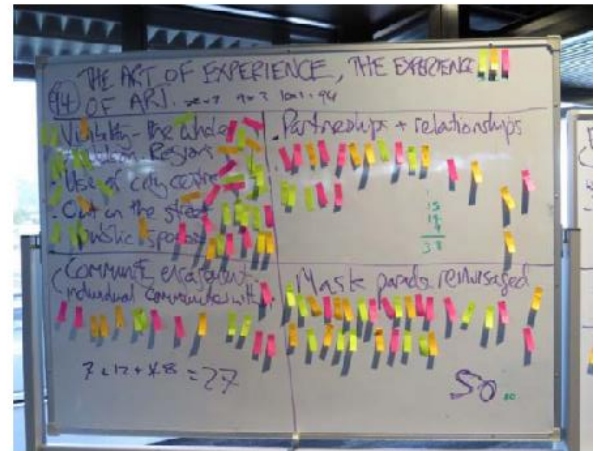 THE ART OF EXPERIENCE, THE EXPERIENCE
94 OF ART.
- Visibility - the whole
Region
- Use of city centre
- Out on the street
Public spaces
- Partnerships + relationships
15
19
4
38
Community engagement
individual communities with
7 + 12 + 8 = 27
- Mask parade reinvisaged
50